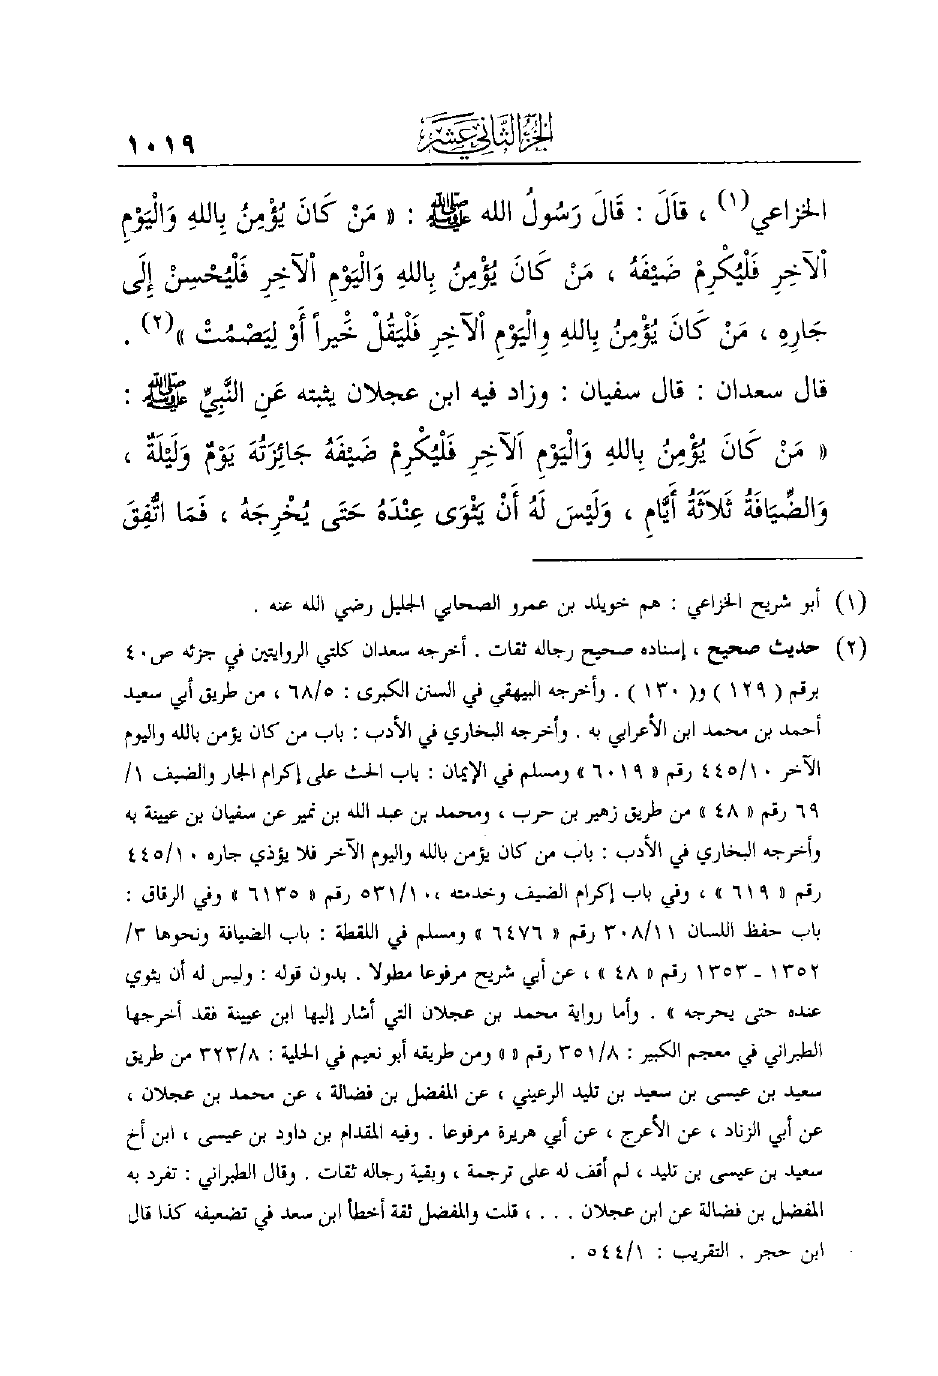 الجزء الثاني عشر ١٠١٩
الخزاعي(١) ، قَالَ : قَالَ رَسُولُ الله ﷺ : « مَنْ كَانَ يُؤْمِنُ بِاللهِ وَالْيَوْمِ
الآخِرِ فَلْيُكْرِمْ ضَيْفَهُ ، مَنْ كَانَ يُؤْمِنُ بِاللهِ وَالْيَوْمِ الآخِرِ فَلْيُحْسِنْ إِلَى
جَارِهِ ، مَنْ كَانَ يُؤْمِنُ بِاللهِ وِالْيَوْمِ الآخِرِ فَلْيَقُلْ خَيراً أَوْ لِيَصْمُتْ »(٢) .
قال سعدان : قال سفيان : وزاد فيه ابن عجلان يثبته عَنِ النَّبِيِّ ﷺ :
« مَنْ كَانَ يُؤْمِنُ بِاللهِ وَالْيَوْمِ الآخِرِ فَلْيُكْرِمْ ضَيْفَهُ جَائِزَتُهَ يَوْمٌ وَلَيْلَةٌ ،
وَالضِّيَافَةُ ثَلاَثَةُ أَيَّامٍ ، وَلَيْسَ لَهُ أَنْ يَثْوَى عِنْدَهُ حَتَى يُخْرِجَهُ ، فَمَا اتُّفِقَ
(١) أبو شريح الخزاعي : هم خويلد بن عمرو الصحابي الجليل رضي الله عنه .
(٢) حديث صحيح ، إسناده صحيح رجاله ثقات . أخرجه سعدان كلتي الروايتين في جزئه ص٤٠
برقم ( ١٢٩ ) و( ١٣٠ ) . وأخرجه البيهقي في السنن الكبرى : ٦٨/٥ ، من طريق أبي سعيد
أحمد بن محمد ابن الأعرابي به . وأخرجه البخاري في الأدب : باب من كان يؤمن بالله واليوم
الآخر ٤٤٥/١٠ رقم « ٦٠١٩ » ومسلم في الإيمان : باب الحث على إكرام الجار والضيف ١/
٦٩ رقم « ٤٨ » من طريق زهير بن حرب ، ومحمد بن عبد الله بن نمير عن سفيان بن عيينة به
وأخرجه البخاري في الأدب : باب من كان يؤمن بالله واليوم الآخر فلا يؤذي جاره ٤٤٥/١٠
رقم « ٦١٩ » ، وفي باب إكرام الضيف وخدمته ٥٣١/١٠، رقم « ٦١٣٥ » وفي الرقاق :
باب حفظ اللسان ٣٠٨/١١ رقم « ٦٤٧٦ » ومسلم في اللقطة : باب الضيافة ونحوها ٣/
١٣٥٢ - ١٣٥٣ رقم « ٤٨ » ، عن أبي شريح مرفوعا مطولا . بدون قوله : وليس له أن يثوي
عنده حتى يحرجه » . وأما رواية محمد بن عجلان التي أشار إليها ابن عيينة فقد أخرجها
الطبراني في معجم الكبير : ٣٥١/٨ رقم « » ومن طريقه أبو نعيم في الحلية : ٣٢٣/٨ من طريق
سعيد بن عيسى بن سعيد بن تليد الرعيني ، عن المفضل بن فضالة ، عن محمد بن عجلان ،
عن أبي الزناد ، عن الأعرج ، عن أبي هريرة مرفوعا . وفيه المقدام بن داود بن عيسى ، ابن أخ
سعيد بن عيسى بن تليد ، لم أقف له على ترجمة ، وبقية رجاله ثقات . وقال الطبراني : تفرد به
المفضل بن فضالة عن ابن عجلان . . . ، قلت والمفضل ثقة أخطأ ابن سعد في تضعيفه كذا قال
ابن حجر . التقريب : ٥٤٤/١ .